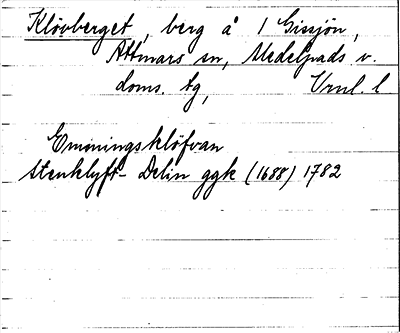 Klövberget, berg å 1 Gissjön,
Attmars sn, Medelpads v.
doms. tg, Vrnl. l
Emoningsklöfvan
Stenklyft- Delin ggk (1688) 1782